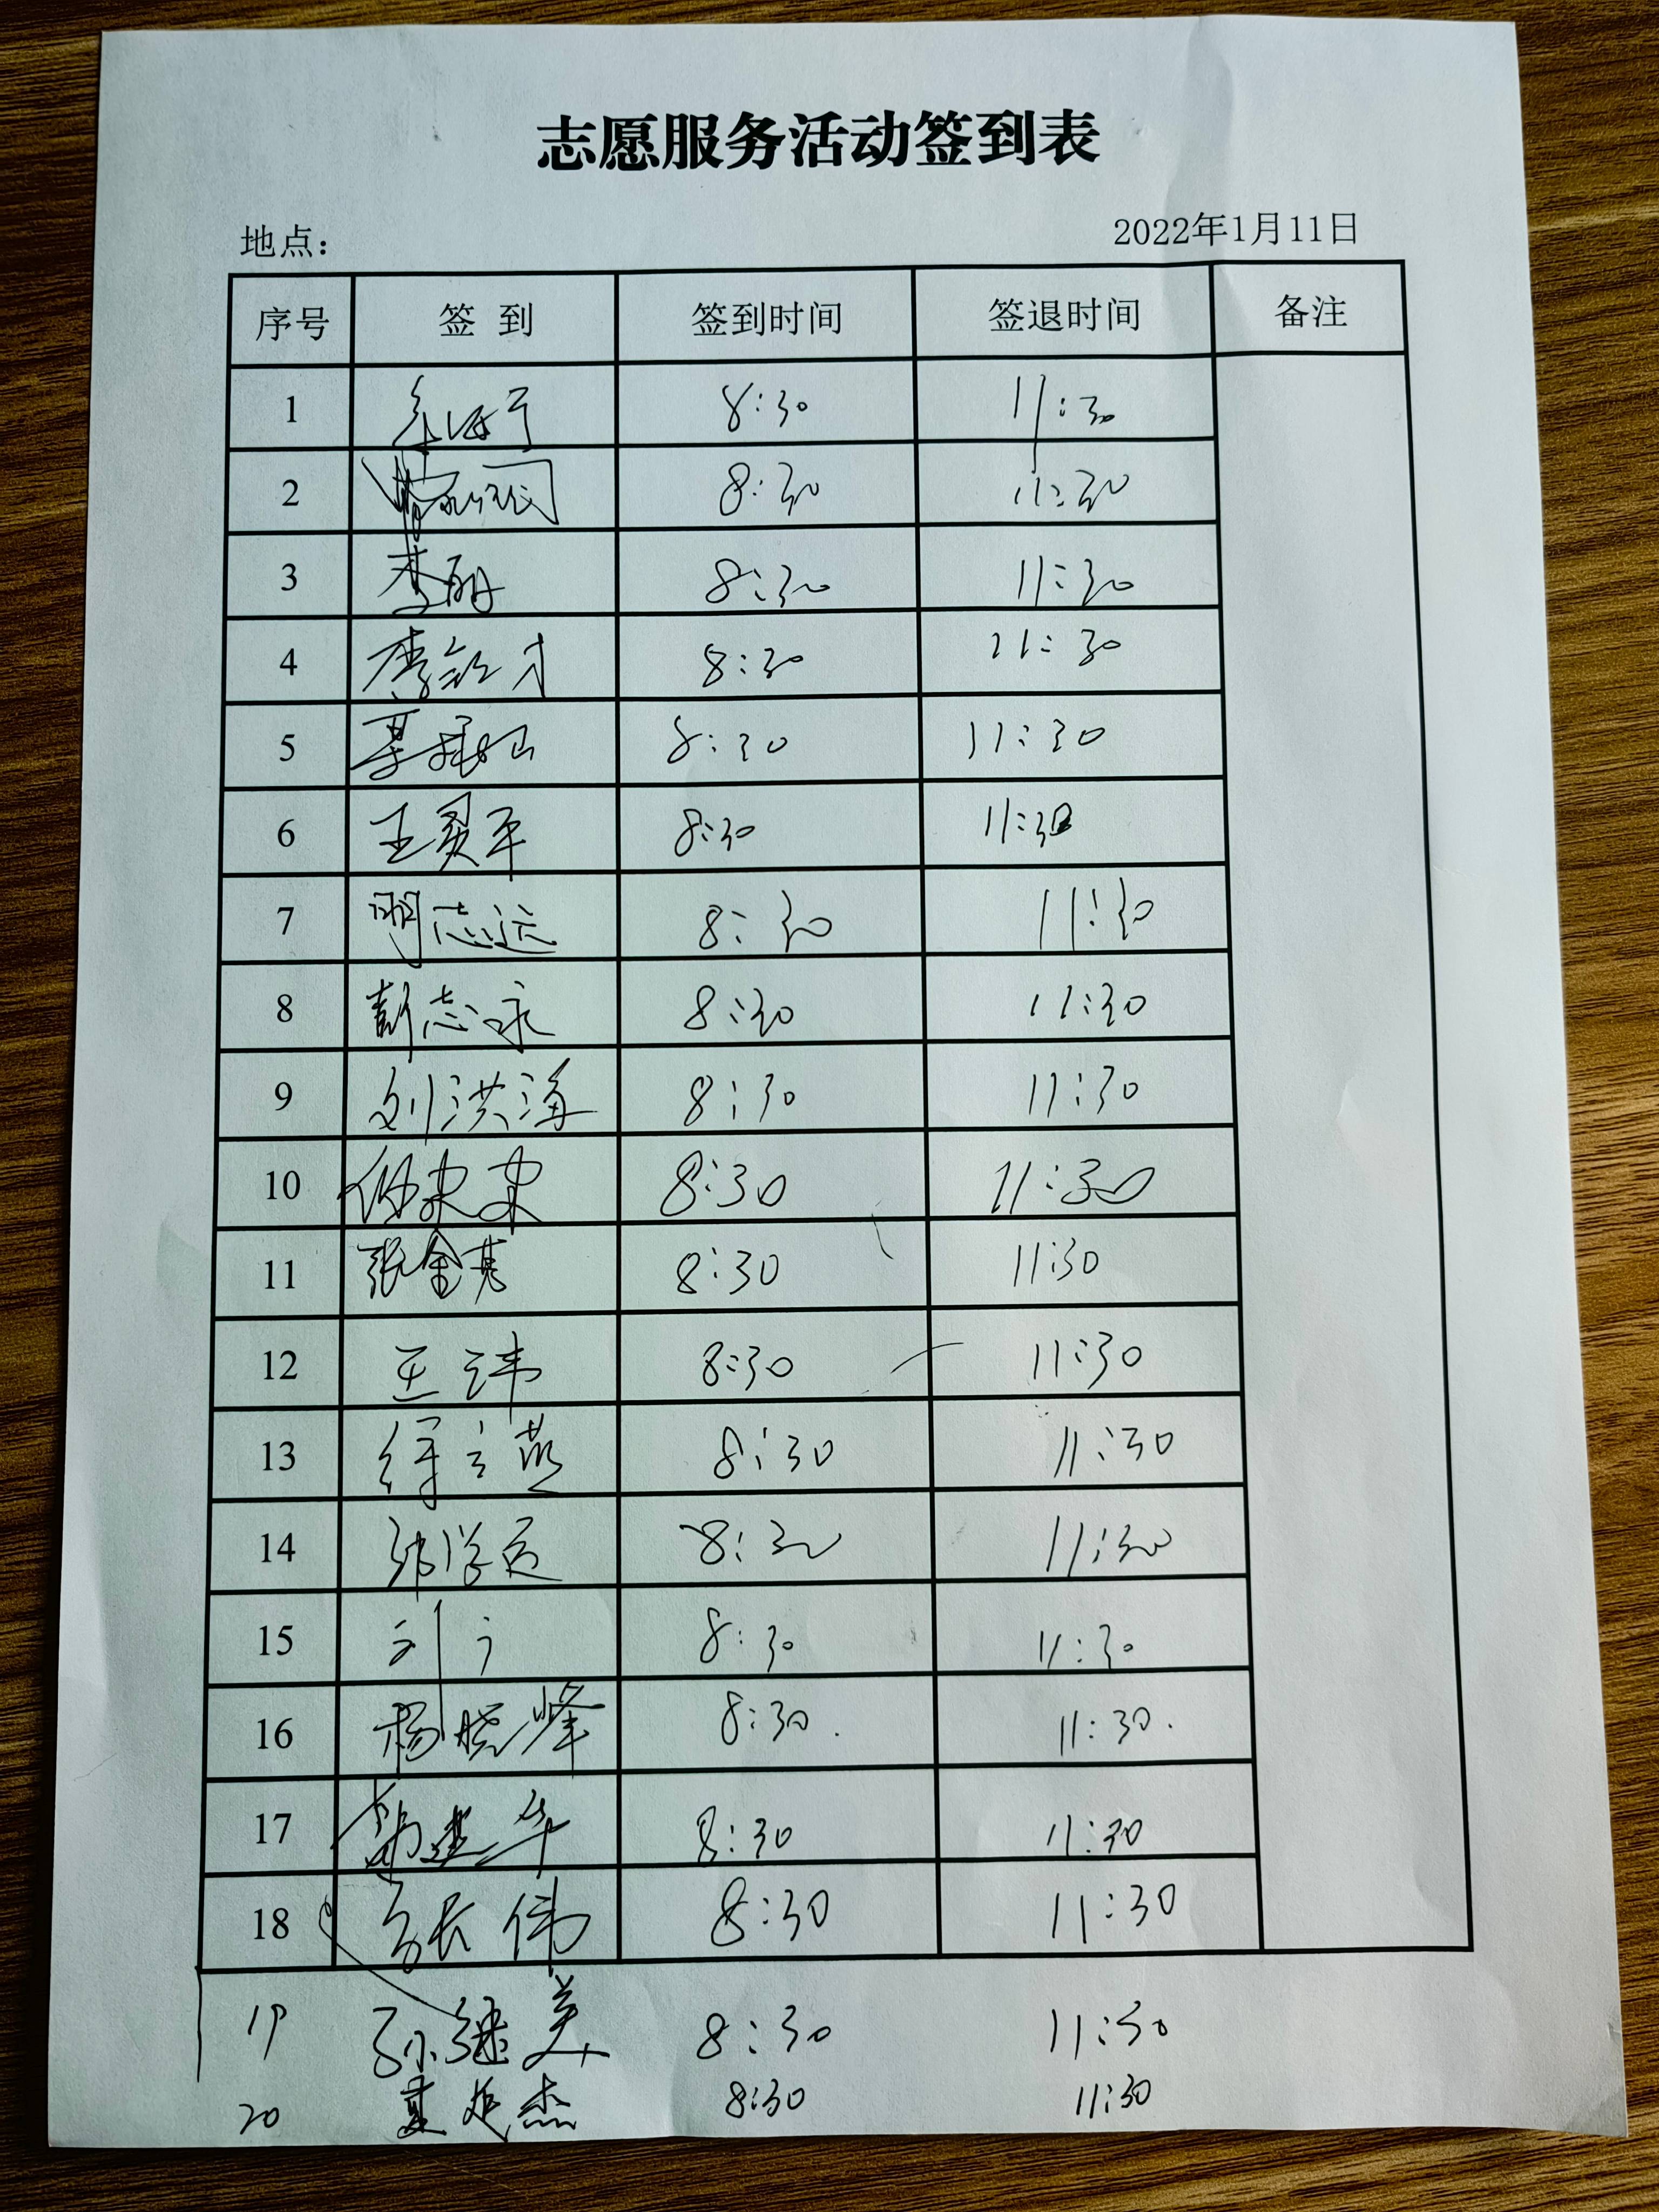 志愿服务活动签到表
地点： 2022年1月11日
序号 签 到 签到时间 签退时间 备注
1 8:30 11:30
2 8:30 11:30
3 李丽 8:30 11:30
4 8:30 11:30
5 8:30 11:30
6 8:30 11:30
7 明志远 8:30 11:30
8 彭志永 8:30 11:30
9 刘洪海 8:30 11:30
10 8:30 11:30
11 张金其 8:30 11:30
12 王玮 8:30 11:30
13 8:30 11:30
14 8:30 11:30
15 8:30 11:30
16 杨晓峰 8:30. 11:30.
17 郭建华 8:30 11:30
18 张伟 8:30 11:30
19 孙继美 8:30 11:30
20 夏延杰 8:30 11:30